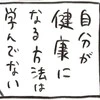 自分が
健康に
なる方法は
学んでない